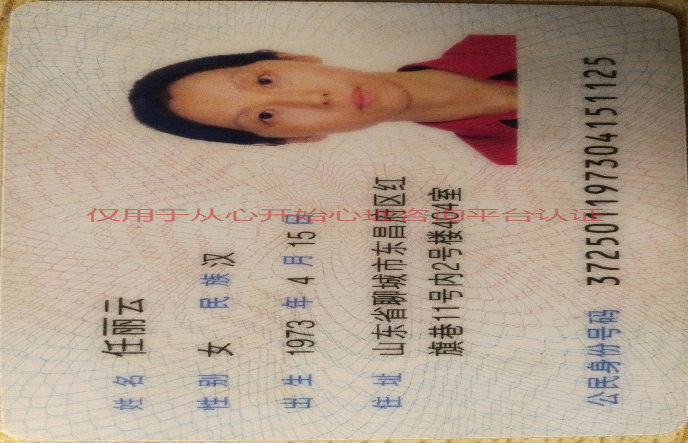 姓名 任丽云
性别 女 民族 汉
出生 1973 年 4 月 15 日
住址 山东省聊城市东昌府区红
旗巷11号内2号楼404室
公民身份号码 372501197304151125
仅用于从心开始心理咨询平台认证